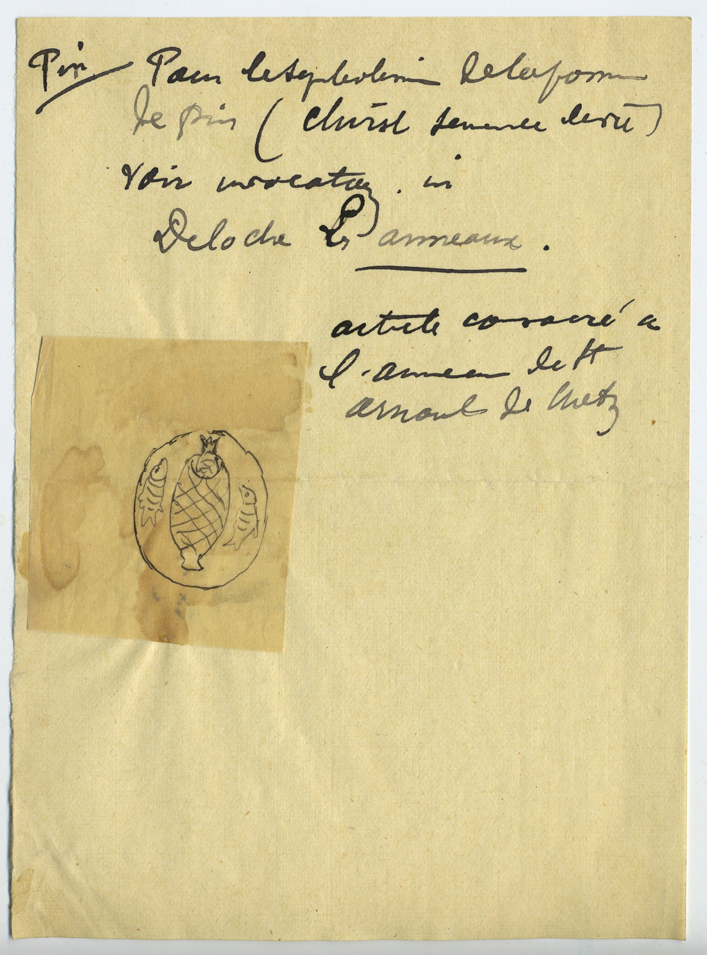 Pin Pour le symbolisme de la pomme
de pin (Christ semence de vie)
Voir invocation in
Deloche Les anneaux.
article consacré a
l'anneau de St
Arnoul de Metz